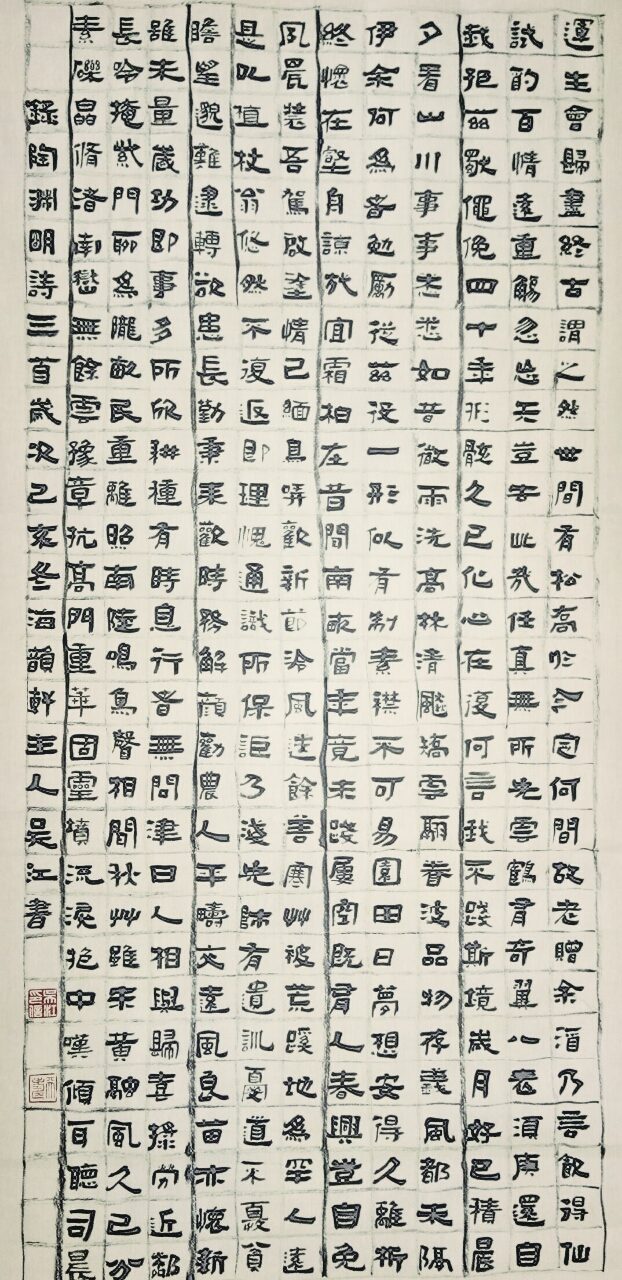 運生會歸盡終古謂之然世間有松喬於今定何間故老贈余酒乃言飲得仙
試酌百情遠重觴忽忘天豈去此哉任真無所先雲鶴有奇翼八表須臾還自
我抱茲獨僶俛四十年形骸久已化心在復何言我不踐斯境歲月好已積晨
夕看山川事事悉如昔微雨洗高林清飆矯雲翮眷彼品物存義風都未隔
伊余何為者勉勵從茲役一形似有制素襟不可易園田日夢想安得久離析
終懷在壑舟諒哉宜霜柏在昔聞南畝當年竟未踐屢空既有人春興豈自免
夙晨裝吾駕啟塗情已緬鳥哢歡新節泠風送餘善寒草被荒蹊地為罕人遠
是以植杖翁悠然不復返即理愧通識所保詎乃淺先師有遺訓憂道不憂貧
瞻望邈難逮轉欲患長勤秉耒歡時務解顏勸農人平疇交遠風良苗亦懷新
雖未量歲功即事多所欣耕種有時息行者無問津日入相與歸壺漿勞近鄰
長吟掩柴門聊為隴畝民重離照南陸鳴鳥聲相聞秋草雖未黃融風久已分
素礫皛脩渚南嶽無餘雲豫章抗高門重華固靈墳流淚抱中嘆傾耳聽司晨
錄陶淵明詩三百歲次己亥冬海韻軒主人吳江書